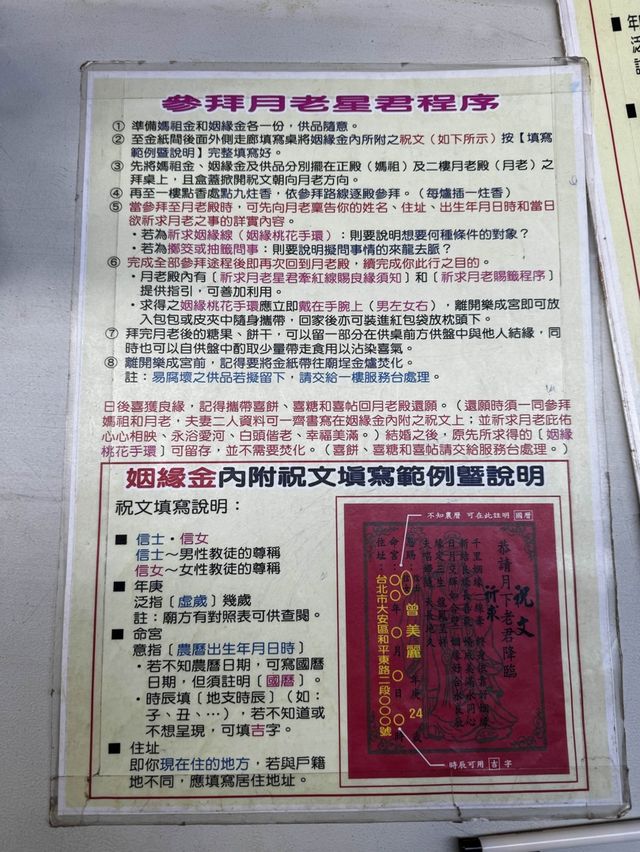 參拜月老星君程序
① 準備媽祖金和姻緣金各一份，供品隨意。
② 至金紙間後面外側走廊填寫桌將姻緣金內所附之祝文（如下所示）按【填寫
範例暨說明】完整填寫好。
③ 先將媽祖金、姻緣金及供品分別擺在正殿（媽祖）及二樓月老殿（月老）之
拜桌上，且盒蓋掀開祝文朝向月老方向。
④ 再至一樓點香處點九炷香，依參拜路線逐殿參拜。（每爐插一炷香）
⑤ 當參拜至月老殿時，可先向月老稟告你的姓名、住址、出生年月日時和當日
欲祈求月老之事的詳實內容。
・若為祈求姻緣線（姻緣桃花手環）：則要說明想要何種條件的對象？
・若為擲筊或抽籤問事：則要說明擬問事情的來龍去脈？
⑥ 完成全部參拜途程後即再次回到月老殿，續完成你此行之目的。
・月老殿內有〔祈求月老星君牽紅線賜良緣須知〕和〔祈求月老賜籤程序〕
提供指引，可善加利用。
・求得之姻緣桃花手環應立即戴在手腕上（男左女右），離開樂成宮即可放
入包包或皮夾中隨身攜帶，回家後亦可裝進紅包袋放枕頭下。
⑦ 拜完月老後的糖果、餅干，可以留一部分在供桌前方供盤中與他人結緣，同
時也可以自供盤中酌取少量帶走食用以沾染喜氣。
⑧ 離開樂成宮前，記得要將金紙帶往廟埕金爐焚化。
註：易腐壞之供品若擬留下，請交給一樓服務台處理。
日後喜獲良緣，記得攜帶喜餅、喜糖和喜帖回月老殿還願。（還願時須一同參拜
媽祖和月老，夫妻二人資料可一齊書寫在姻緣金內附之祝文上；並祈求月老庇佑
心心相映、永浴愛河、白頭偕老、幸福美滿。）結婚之後，原先所求得的〔姻緣
桃花手環〕可留存，並不需要焚化。（喜餅、喜糖和喜帖請交給服務台處理。）
姻緣金內附祝文填寫範例暨說明
祝文填寫說明：
■ 信士・信女
信士～男性教徒的尊稱
信女～女性教徒的尊稱
■ 年庚
泛指〔虛歲〕幾歲
註：廟方有對照表可供查閱。
■ 命宮
意指〔農曆出生年月日時〕
・若不知農曆日期，可寫國曆
日期，但須註明〔國曆〕。
・時辰填〔地支時辰〕（如：
子、丑、…），若不知道或
不想呈現，可填吉字。
■ 住址
即你現在住的地方，若與戶籍
地不同，應填寫居住地址。
不知農曆 可在此註明 國曆
祝文
恭請月下老君降臨
祈求
千里姻緣一線牽
曾美麗 年庚 24 歲
命宮：〇〇年〇月〇日〇時
住址：台北市大安區和平東路二段〇〇〇號
時辰可用 吉 字